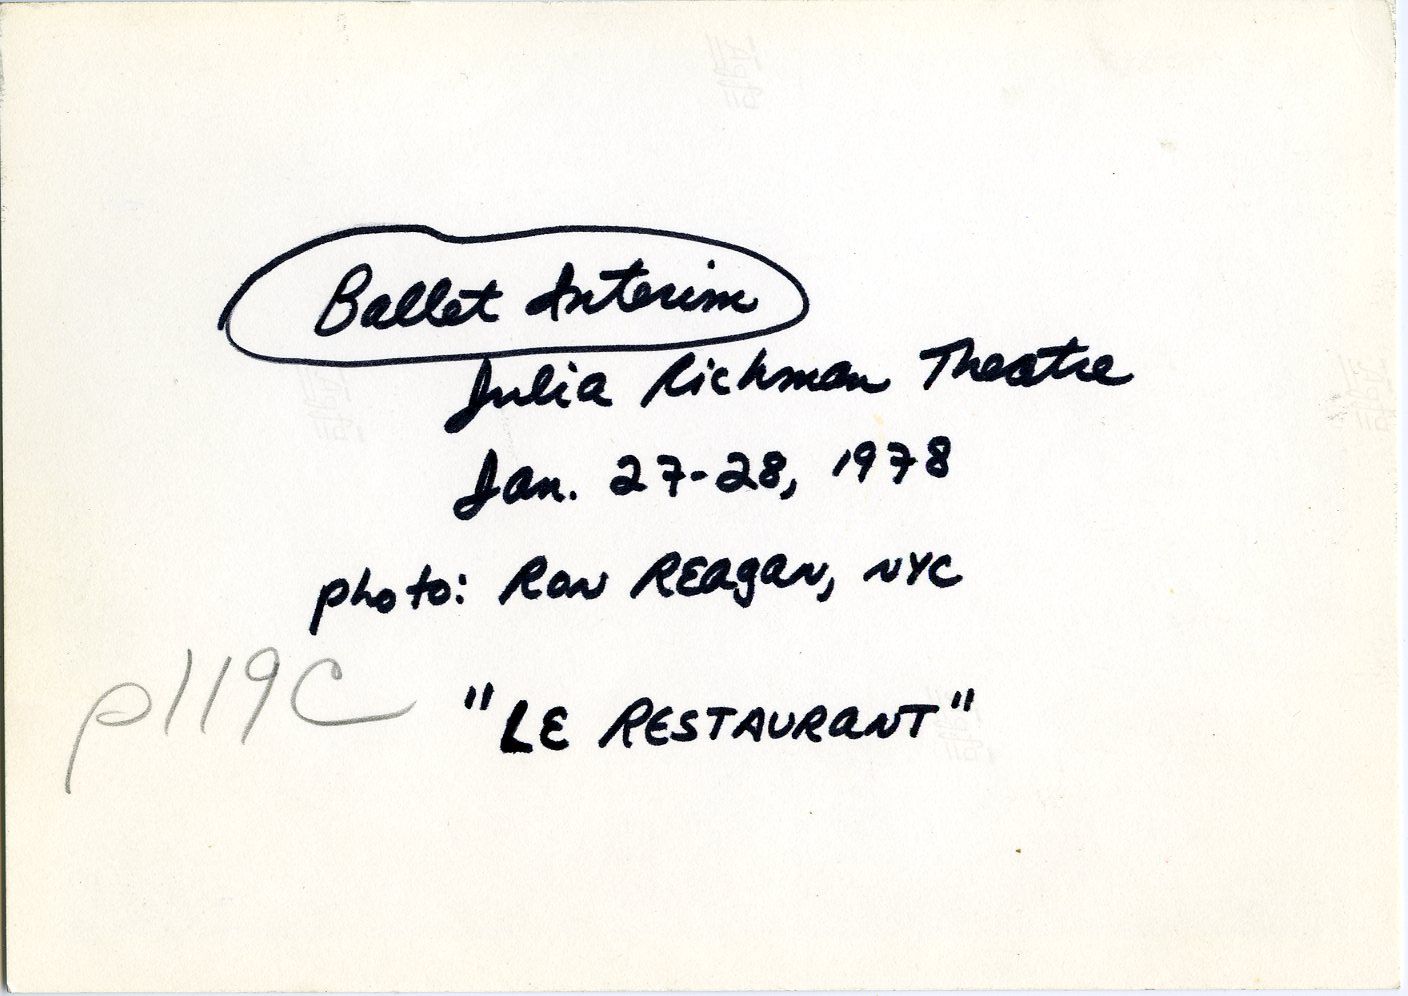 Ballet Interim
Julia Richman Theatre
Jan. 27-28, 1978
photo: Ron Reagan, NYC
p119C
"LE RESTAURANT"